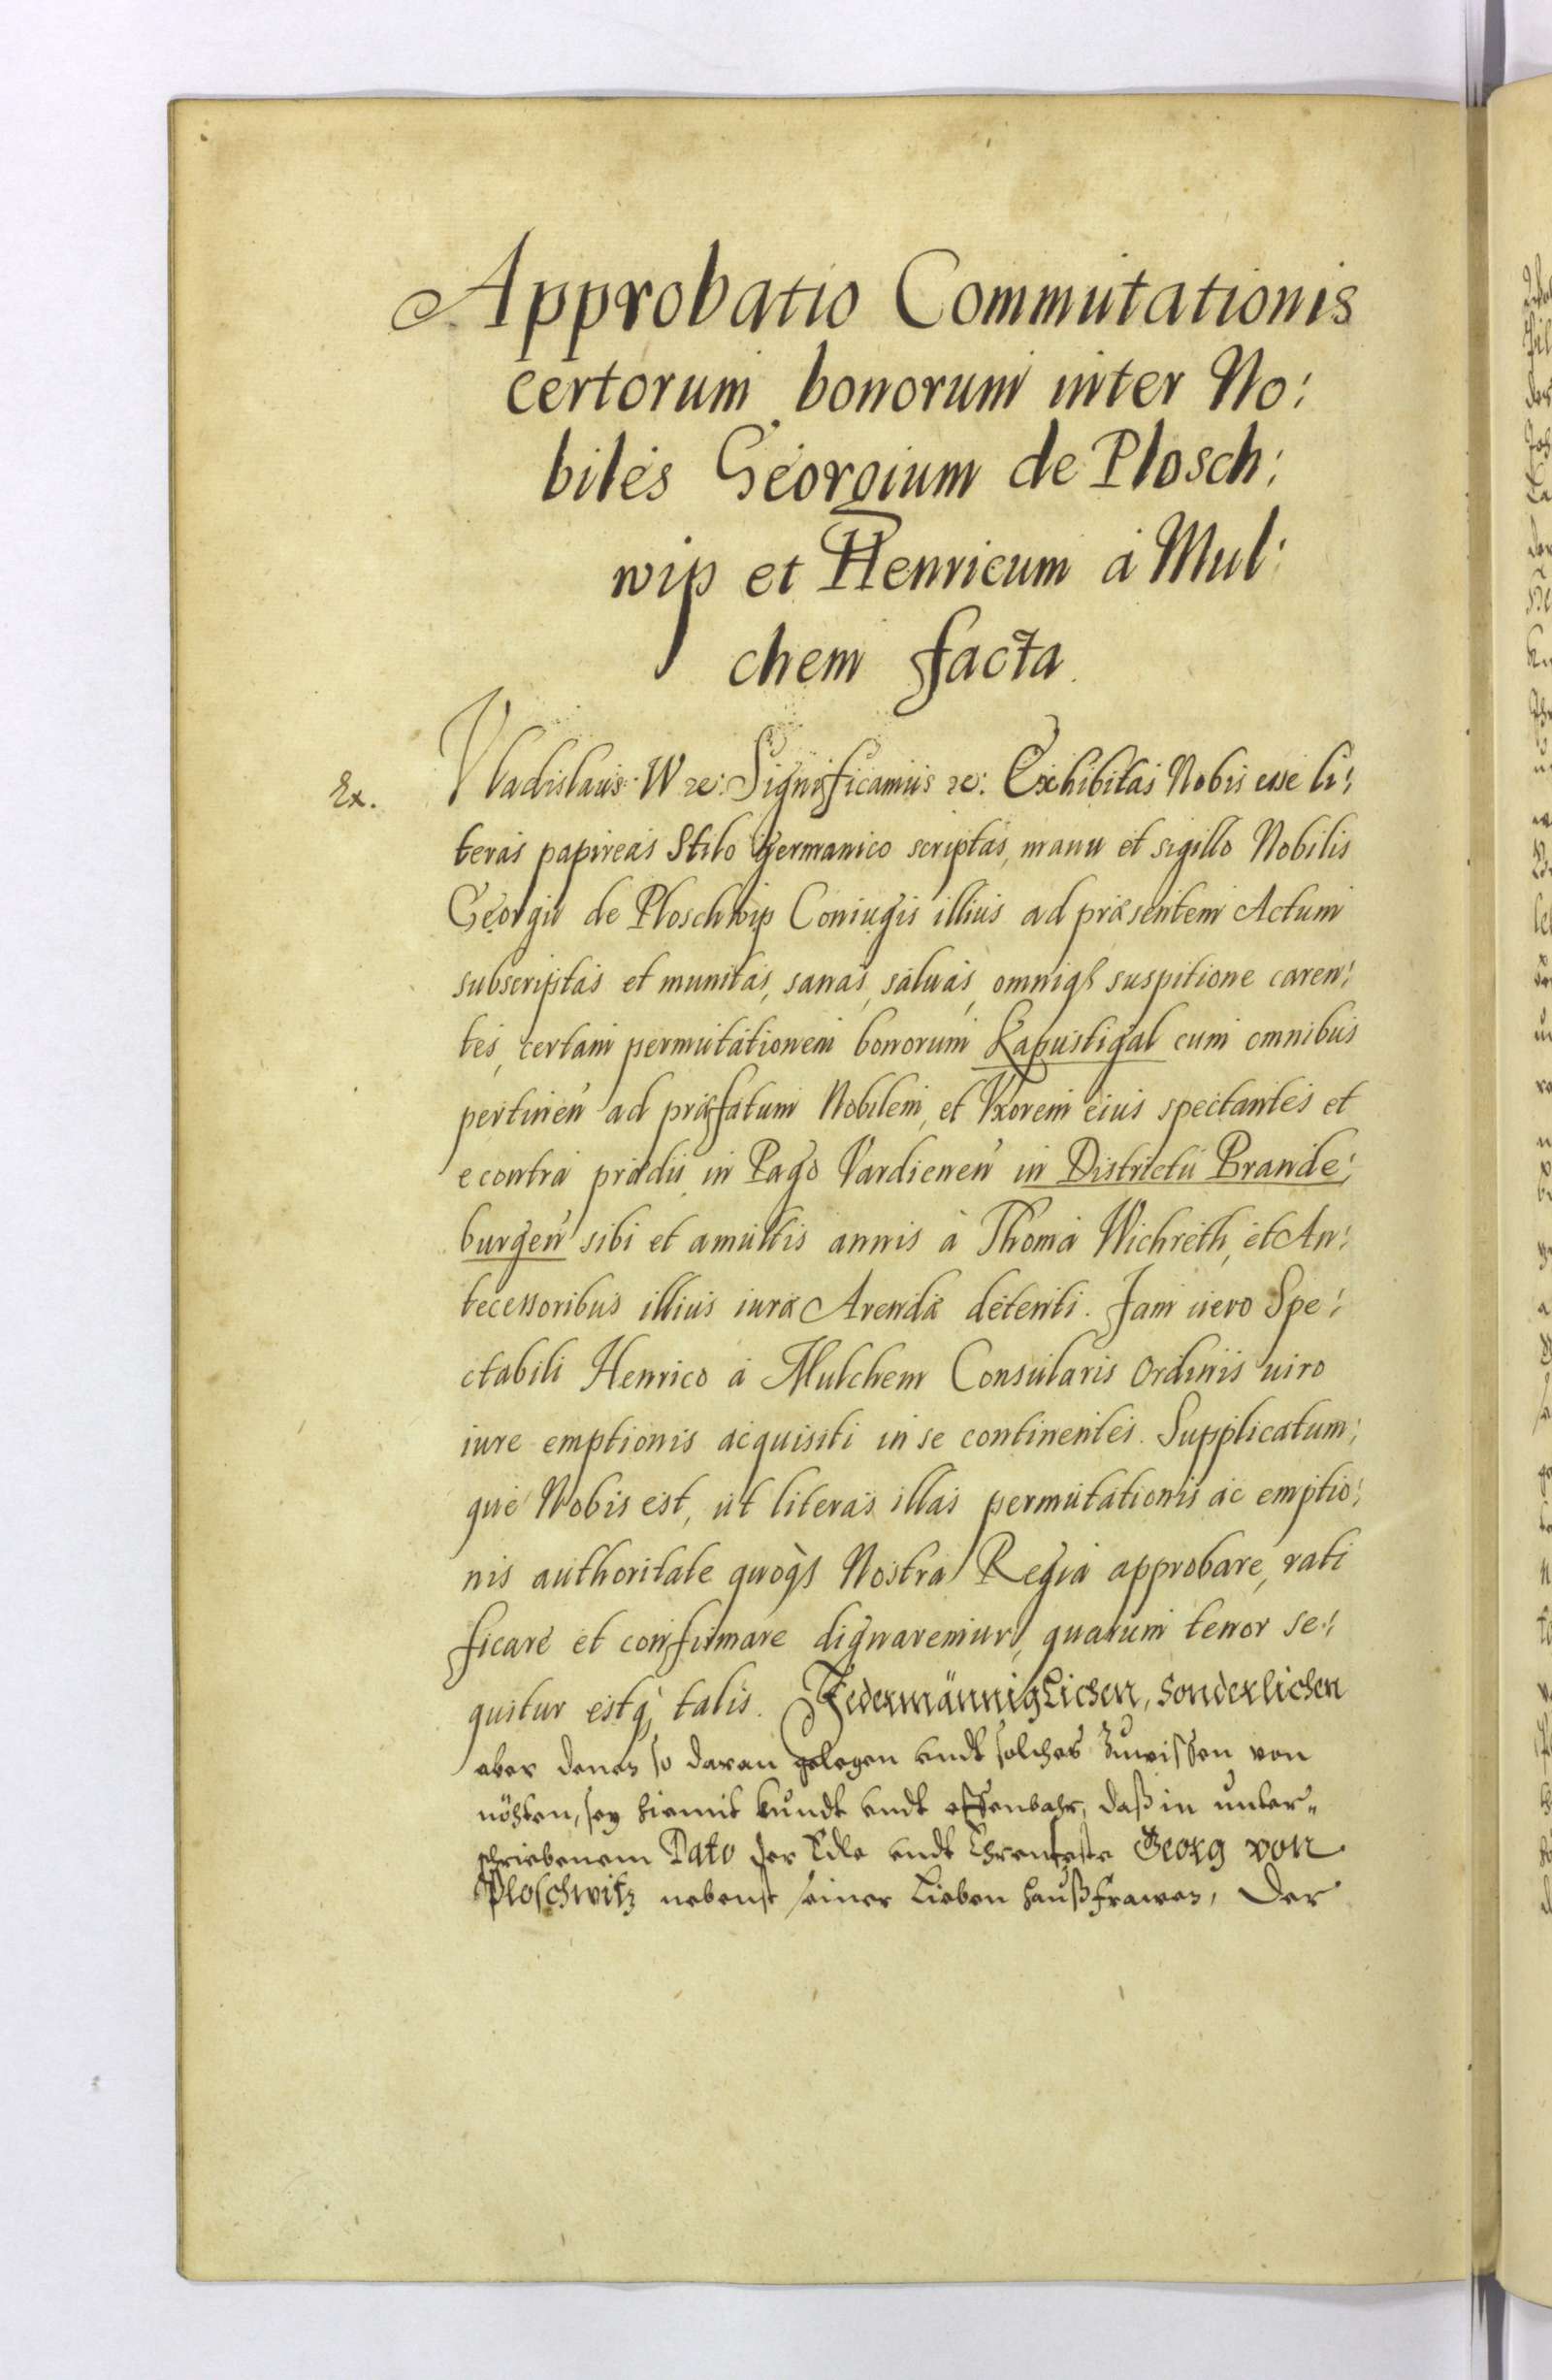 Approbatio Commutationis
certorum bonorum inter No:
biles Georgium de Plosch:
wiß et Henricum à Mul:
chem facta.
Ex.
Vladislaus W ꝛc: Significamus ꝛc: Exhibitas Nobis esse li:
teras papireas Stilo Germanico scriptas, manu et sigillo Nobilis
Georgii de Ploschwiß Coniugis illius ad præsentem Actum
subscriptas et munitas, sanas, saluas, omniqꝫ suspitione caren:
tes, certam permutationem bonorum Kapustigal cum omnibus
pertinen ad præfatum Nobilem, et Uxorem eius spectantes et
e contra prædii in Pago Vardienen in Districtu Brande:
burgen sibi et a multis annis à Thoma Wichreth, et An:
tecessoribus illius iuræ Arendæ detenti. Jam uero Spe:
ctabili Henrico à Mulchem Consularis Ordinis uiro
iure emptionis acquisiti in se continentes. Supplicatum:
que Nobis est, ut literas illas permutationis ac emptio:
nis authoritate quoqꝫ Nostra Regia approbare, rati
ficare et confirmare dignaremur, quarum tenor se:
quitur estqꝫ talis. Jedermänniglichen, sonderlichen
aber denen so daran gelegen vndt solches Zuwissen von
nöhten, sey hiemit kundt vndt offenbahr, daß in unter„
schriebenem Dato der Edle vndt Ehrenfeste Georg von
Ploschwitz nebenst seiner Lieben haußfrawen, Der